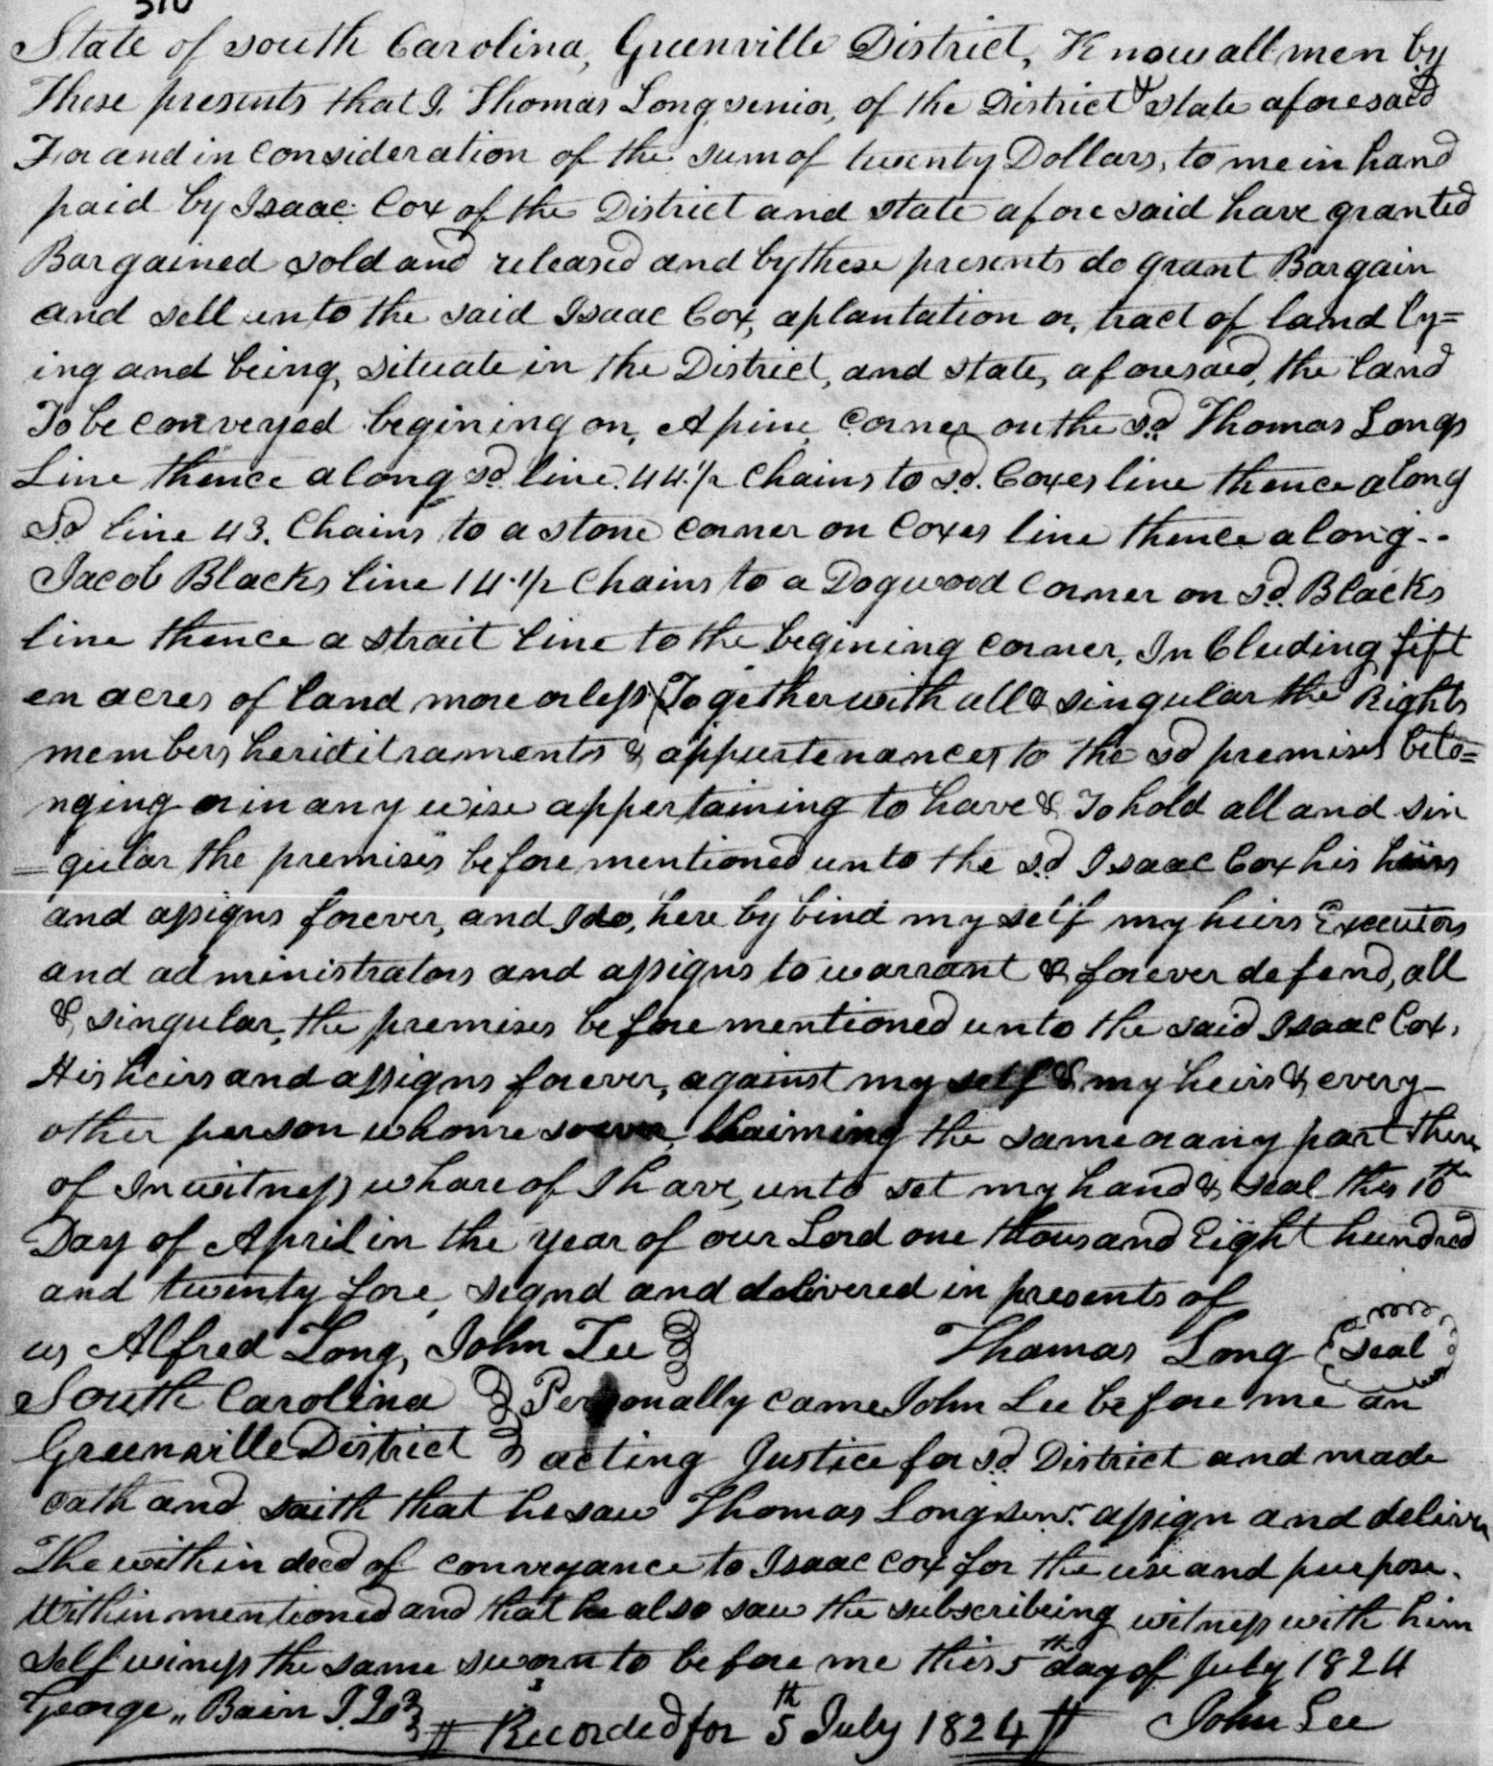 310
State of south Carolina, Greenville District, Know all men by
These presents that I. Thomas Long senior, of the District & state aforesaid
For and in Consideration of the sum of twenty Dollars, to me in hand
paid by Isaac Cox of the District and state afore said have granted
Bargained sold and released and by these presents do grant Bargain
and sell unto the said Isaac Cox, a plantation or, tract of land ly=
ing and being, situate in the District, and state, aforesaid, the land
To be conveyed begining on, A pine Corner on the sd Thomas Longs
Line thence along sd line 44.½ Chains to sd. Coxes line thence along
Sd line 43. Chains to a stone corner on Coxes line thence along..
Jacob Blacks line 14.½ Chains to a Dogwood Corner on sd. Blacks
line thence a strait line to the begining corner, In Cluding fift
en acres of land more or less (Together with all & singular the Rights
members heriditraments & appurtenances to the sd premises belo=
nging or in any wise appertaining to have & To hold all and sin
=gular the premises before mentioned unto the sd Isaac Cox his heirs
and assigns forever, and I do, here by bind my self my heirs Executors
and administrators and assigns to warrant & forever defend, all
& singular, the premises before mentioned unto the said Isaac Cox,
His heirs and assigns forever, against my self & my heirs & every
other person whome soever Claiming the same or any part there
of In witness whareof I have, unto set my hand & seal this 10th
Day of April in the year of our Lord one thousand Eight hundred
and twenty fore, signd and delivered in presents of
us Alfred Long, John Lee Thomas Long (Seal
South Carolina Personally came John Lee before me an
Greenville District acting Justice for sd District and made
oath and saith that he saw Thomas Long senr. assign and deliver
The within deed of conveyance to Isaac Cox for the use and purpose.
Within mentioned and that he also saw the subscribing witness with him
self winess the same sworn to before me this 5th day of July 1824
George,, Bain J. Q. John Lee
Recorded for 5th July 1824